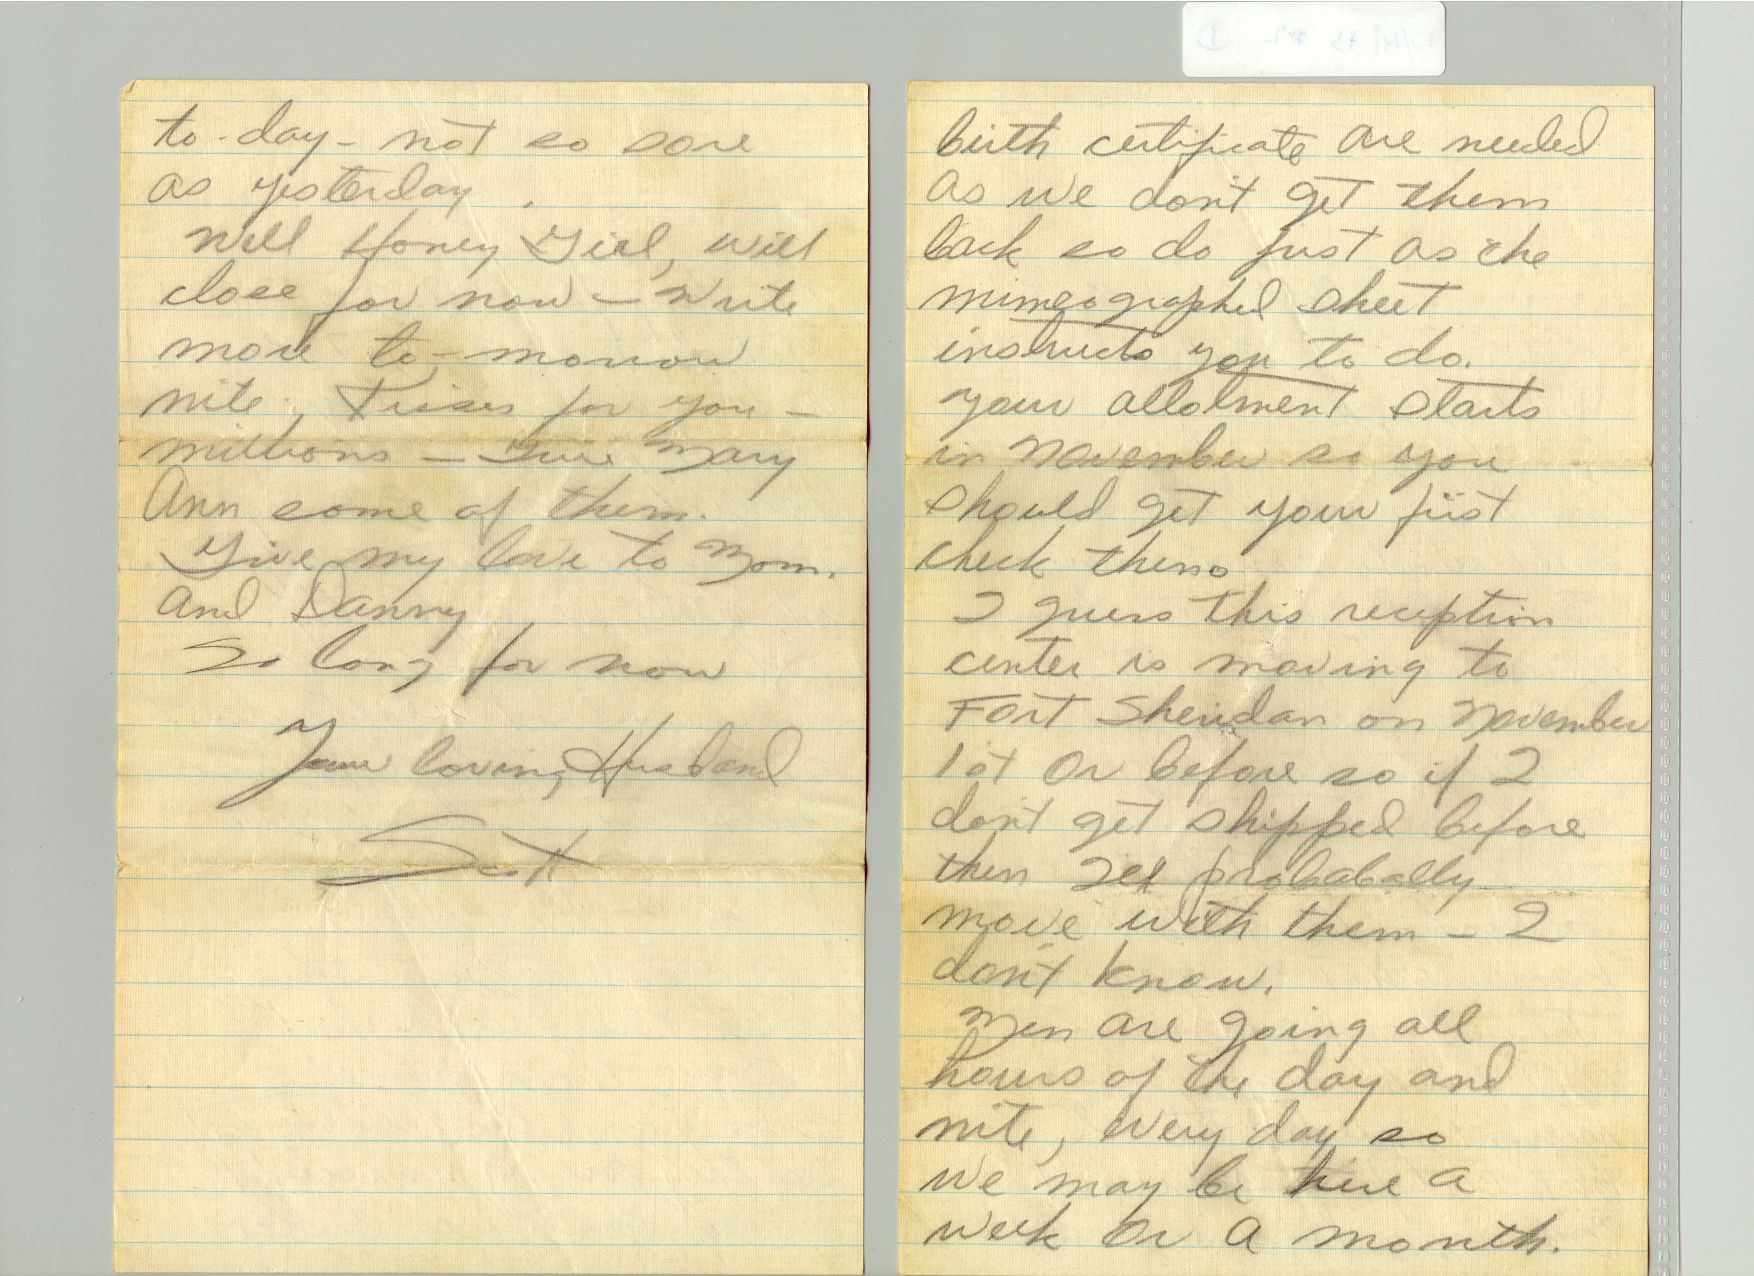 to-day - not so sore
as yesterday.
Well Honey Girl, will
close for now - write
more to-morrow
nite. Kisses for you -
millions - Give Mary
Ann some of them.
Give my love to Mom.
and Danny
So long for now
Your loving Husband
birth certificate are needed
as we don't get them
back so do just as the
mimeographed sheet
instructs you to do.
Your allotment starts
in November so you
should get your first
check then.
I guess this reception
center is moving to
Fort Sheridan on November
1st or before so if I
don't get shipped before
then I'll probabally
move with them - I
don't know.
Men are going all
hours of the day and
nite, every day so
we may be here a
week or a month.